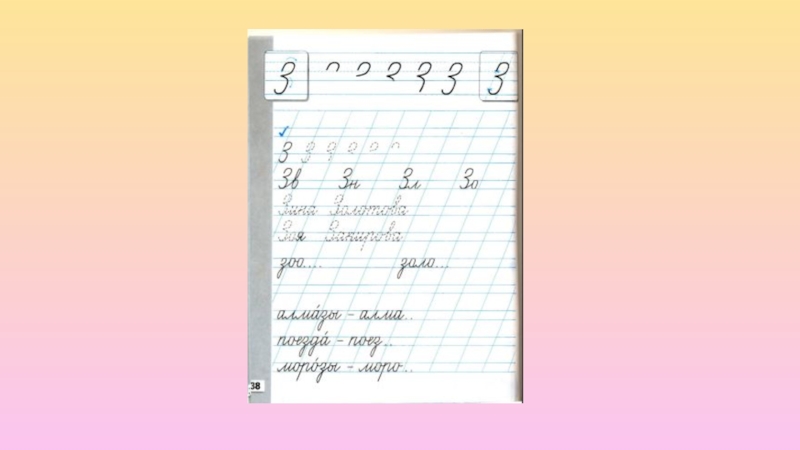 З З З
З З
Зв Зн Зл Зо
Зина Золотова
Зоя Закирова
зоо.... золо...
алма́зы – алма..
поезда́ – поез..
моро́зы – моро..
38